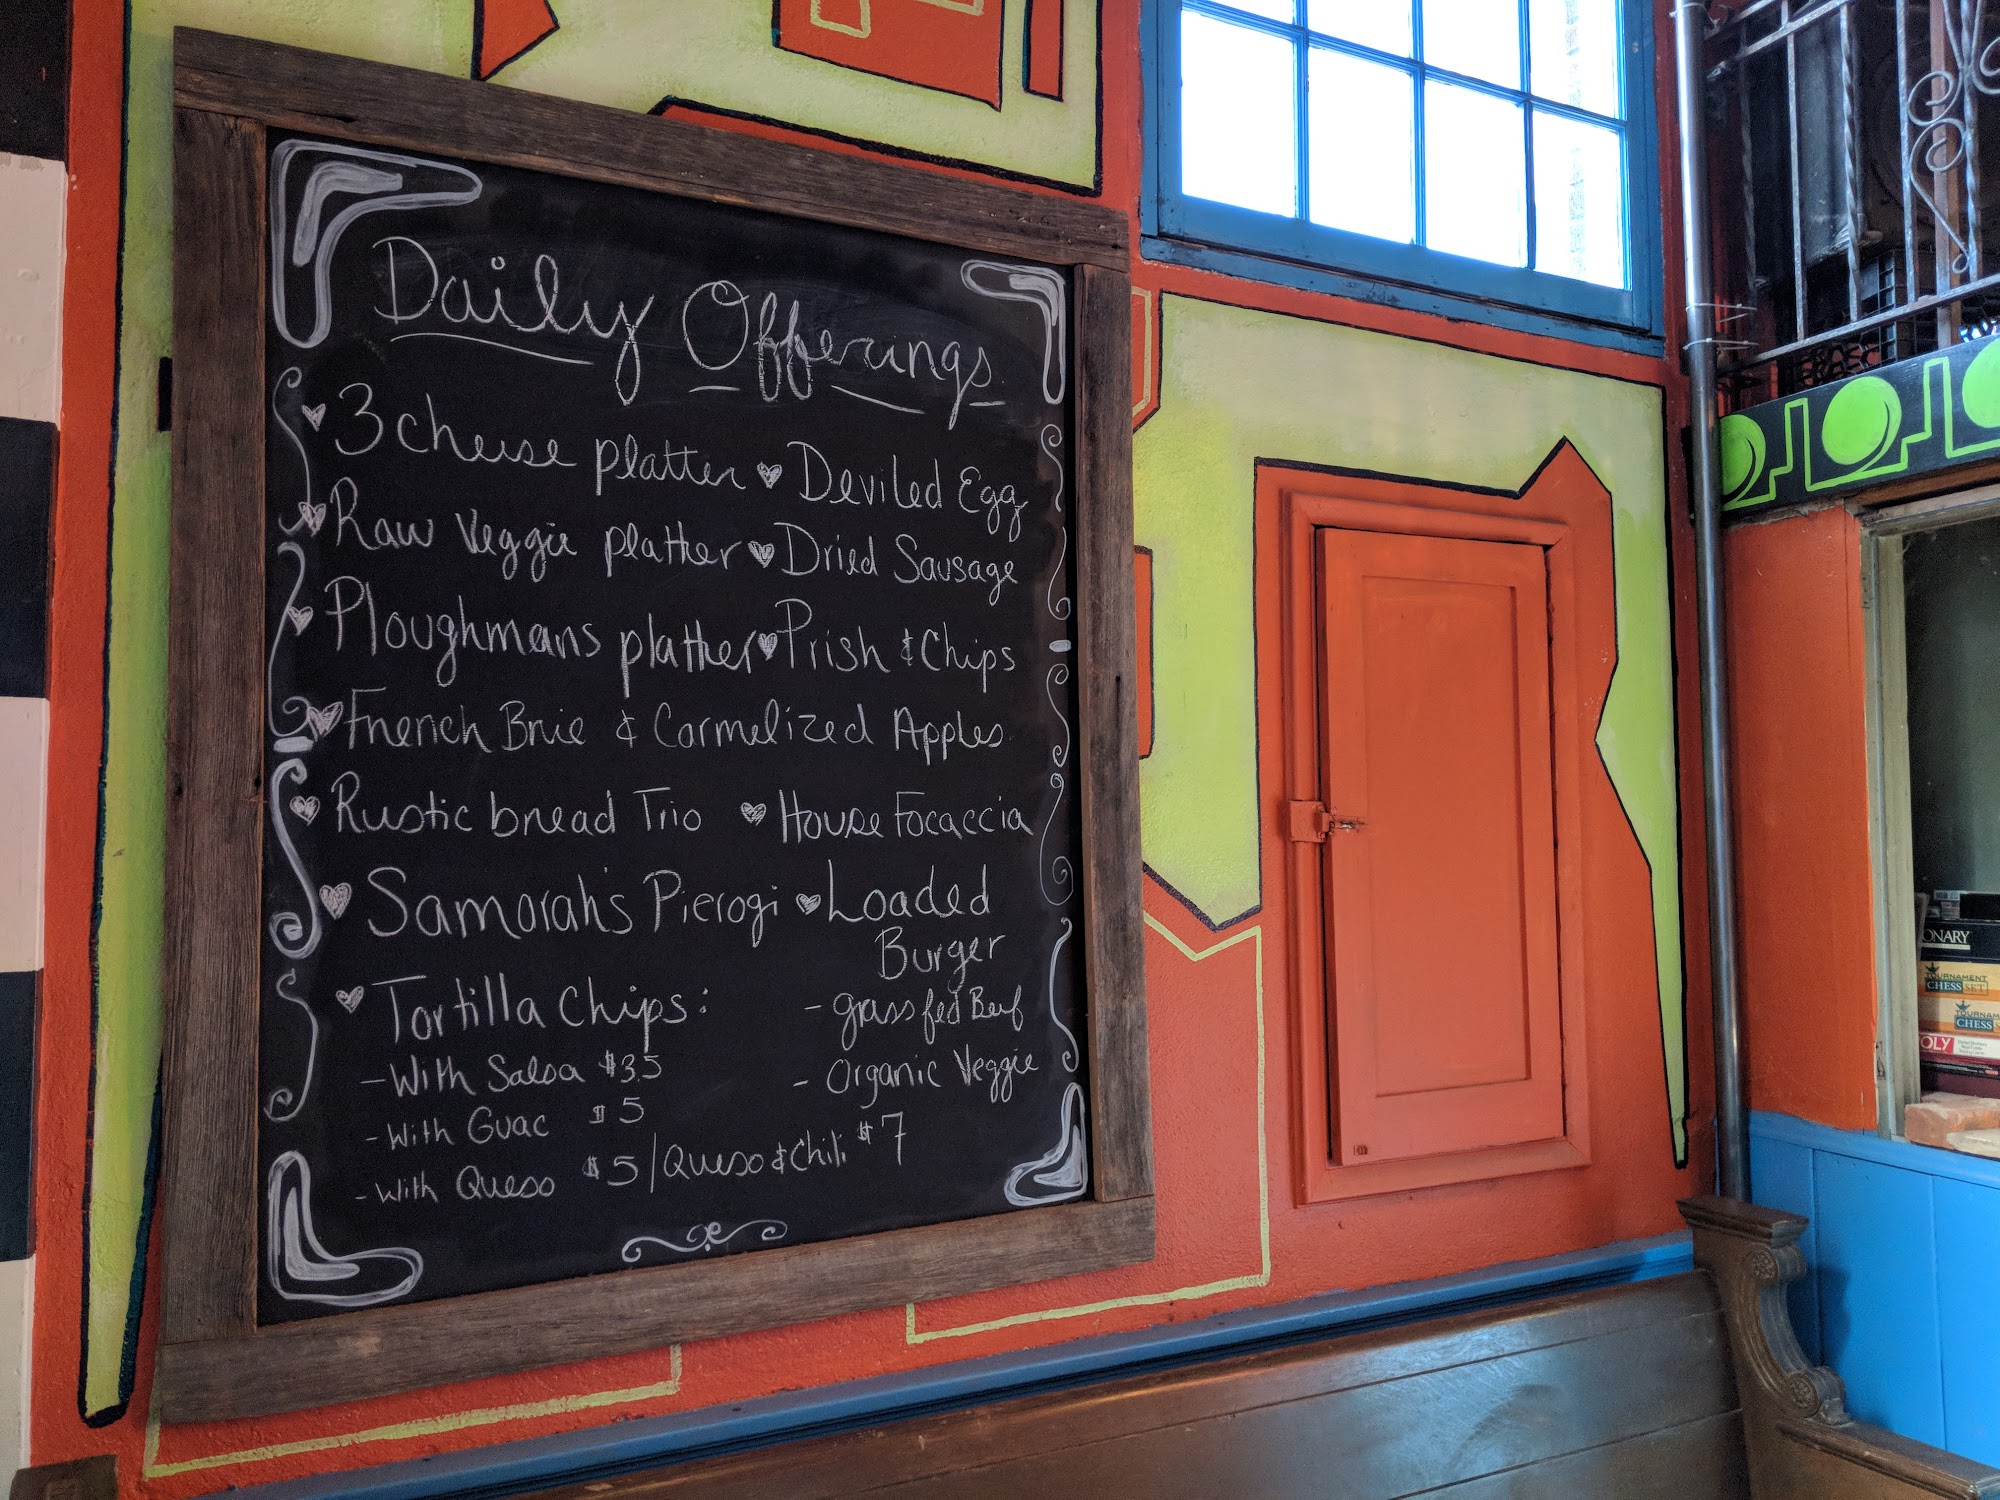 Daily Offerings
3 cheese platter ♥ Deviled Egg
Raw Veggie plather ♥ Dried Sausage
Ploughmans plather ♥ Prish & Chips
French Brie & Carmelized Apples
Rustic bread Trio ♥ House Focaccia
Samorah's Pierogi ♥ Loaded
Burger
Tortilla Chips:
- grass fed Beef
- With Salsa $3.5
- Organic Veggie
- With Guac $5
- With Queso $5 / Queso & Chili $7
ONARY
TOURNAMENT
CHESS SET
TOURNAM
CHESS
OLY